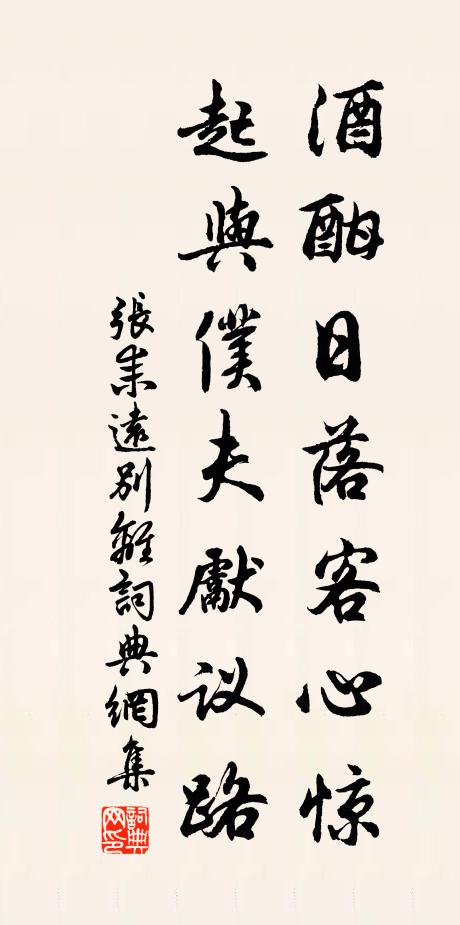 酒酣日落客心惊
起與僕夫獻议路
張耒遠別離詞典網集
詞典
网印